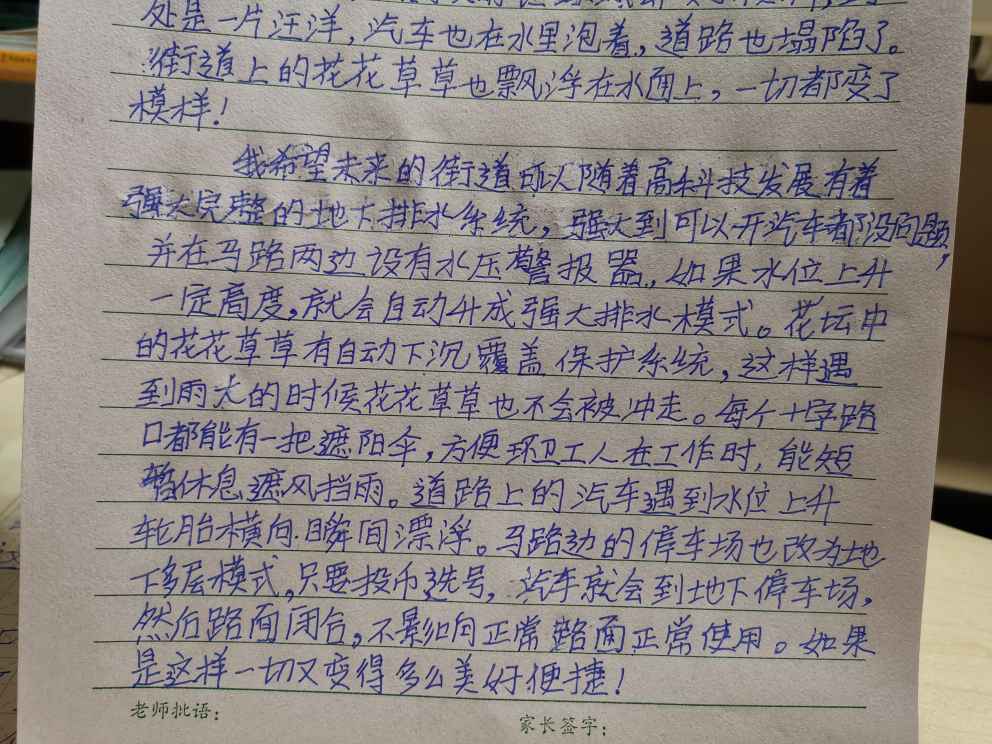 处是一片汪洋,汽车也在水里泡着,道路也塌陷了。
街道上的花花草草也飘浮在水面上,一切都变了
模样!
我希望未来的街道可以随着高科技发展有着
强大完整的地下排水系统,强大到可以开汽车都没问题,
并在马路两边设有水压警报器,如果水位上升
一定高度,就会自动升成强大排水模式。花坛中
的花花草草有自动下沉覆盖保护系统,这样遇
到雨大的时候花花草草也不会被冲走。每个十字路
口都能有一把遮阳伞,方便环卫工人在工作时,能短
暂休息遮风挡雨。道路上的汽车遇到水位上升
轮胎横向瞬间漂浮。马路边的停车场也改为地
下多层模式,只要投币选号,汽车就会到地下停车场,
然后路面闭合,不影响正常路面正常使用。如果
是这样一切又变得多么美好便捷!
老师批语:
家长签字: